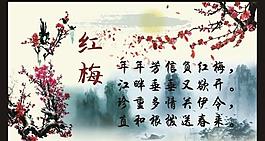 红梅
年年芳信负红梅，
江畔垂垂又欲开。
珍重多情关伊令，
直和根拨送春来。